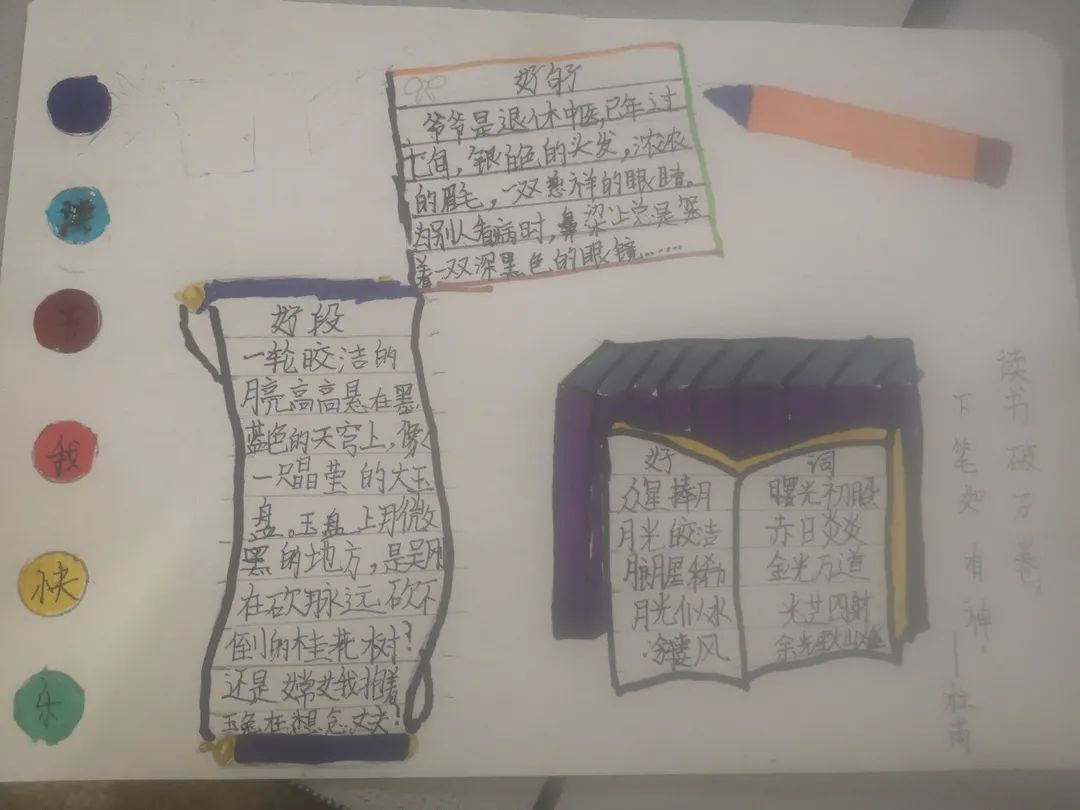 读
书
我
快
乐
好句
爷爷是退休中医,已年过
七旬,银白色的头发,浓浓
的眉毛,一双慈祥的眼睛。
为别人看病时,鼻梁上总是架
着一双深黑色的眼镜……
好段
一轮皎洁的
月亮高高悬在墨
蓝色的天穹上,像
一只晶莹的大玉
盘。玉盘上用微
黑的地方,是吴刚
在砍脉远砍不
倒的桂花树?
还是嫦娥抱着
玉兔在想念丈夫?
好词
众星捧月
月光皎洁
月朗星稀
月光似水
曙光初照
赤日炎炎
金光万道
光芒四射
读书破万卷,
下笔如有神。
——杜甫